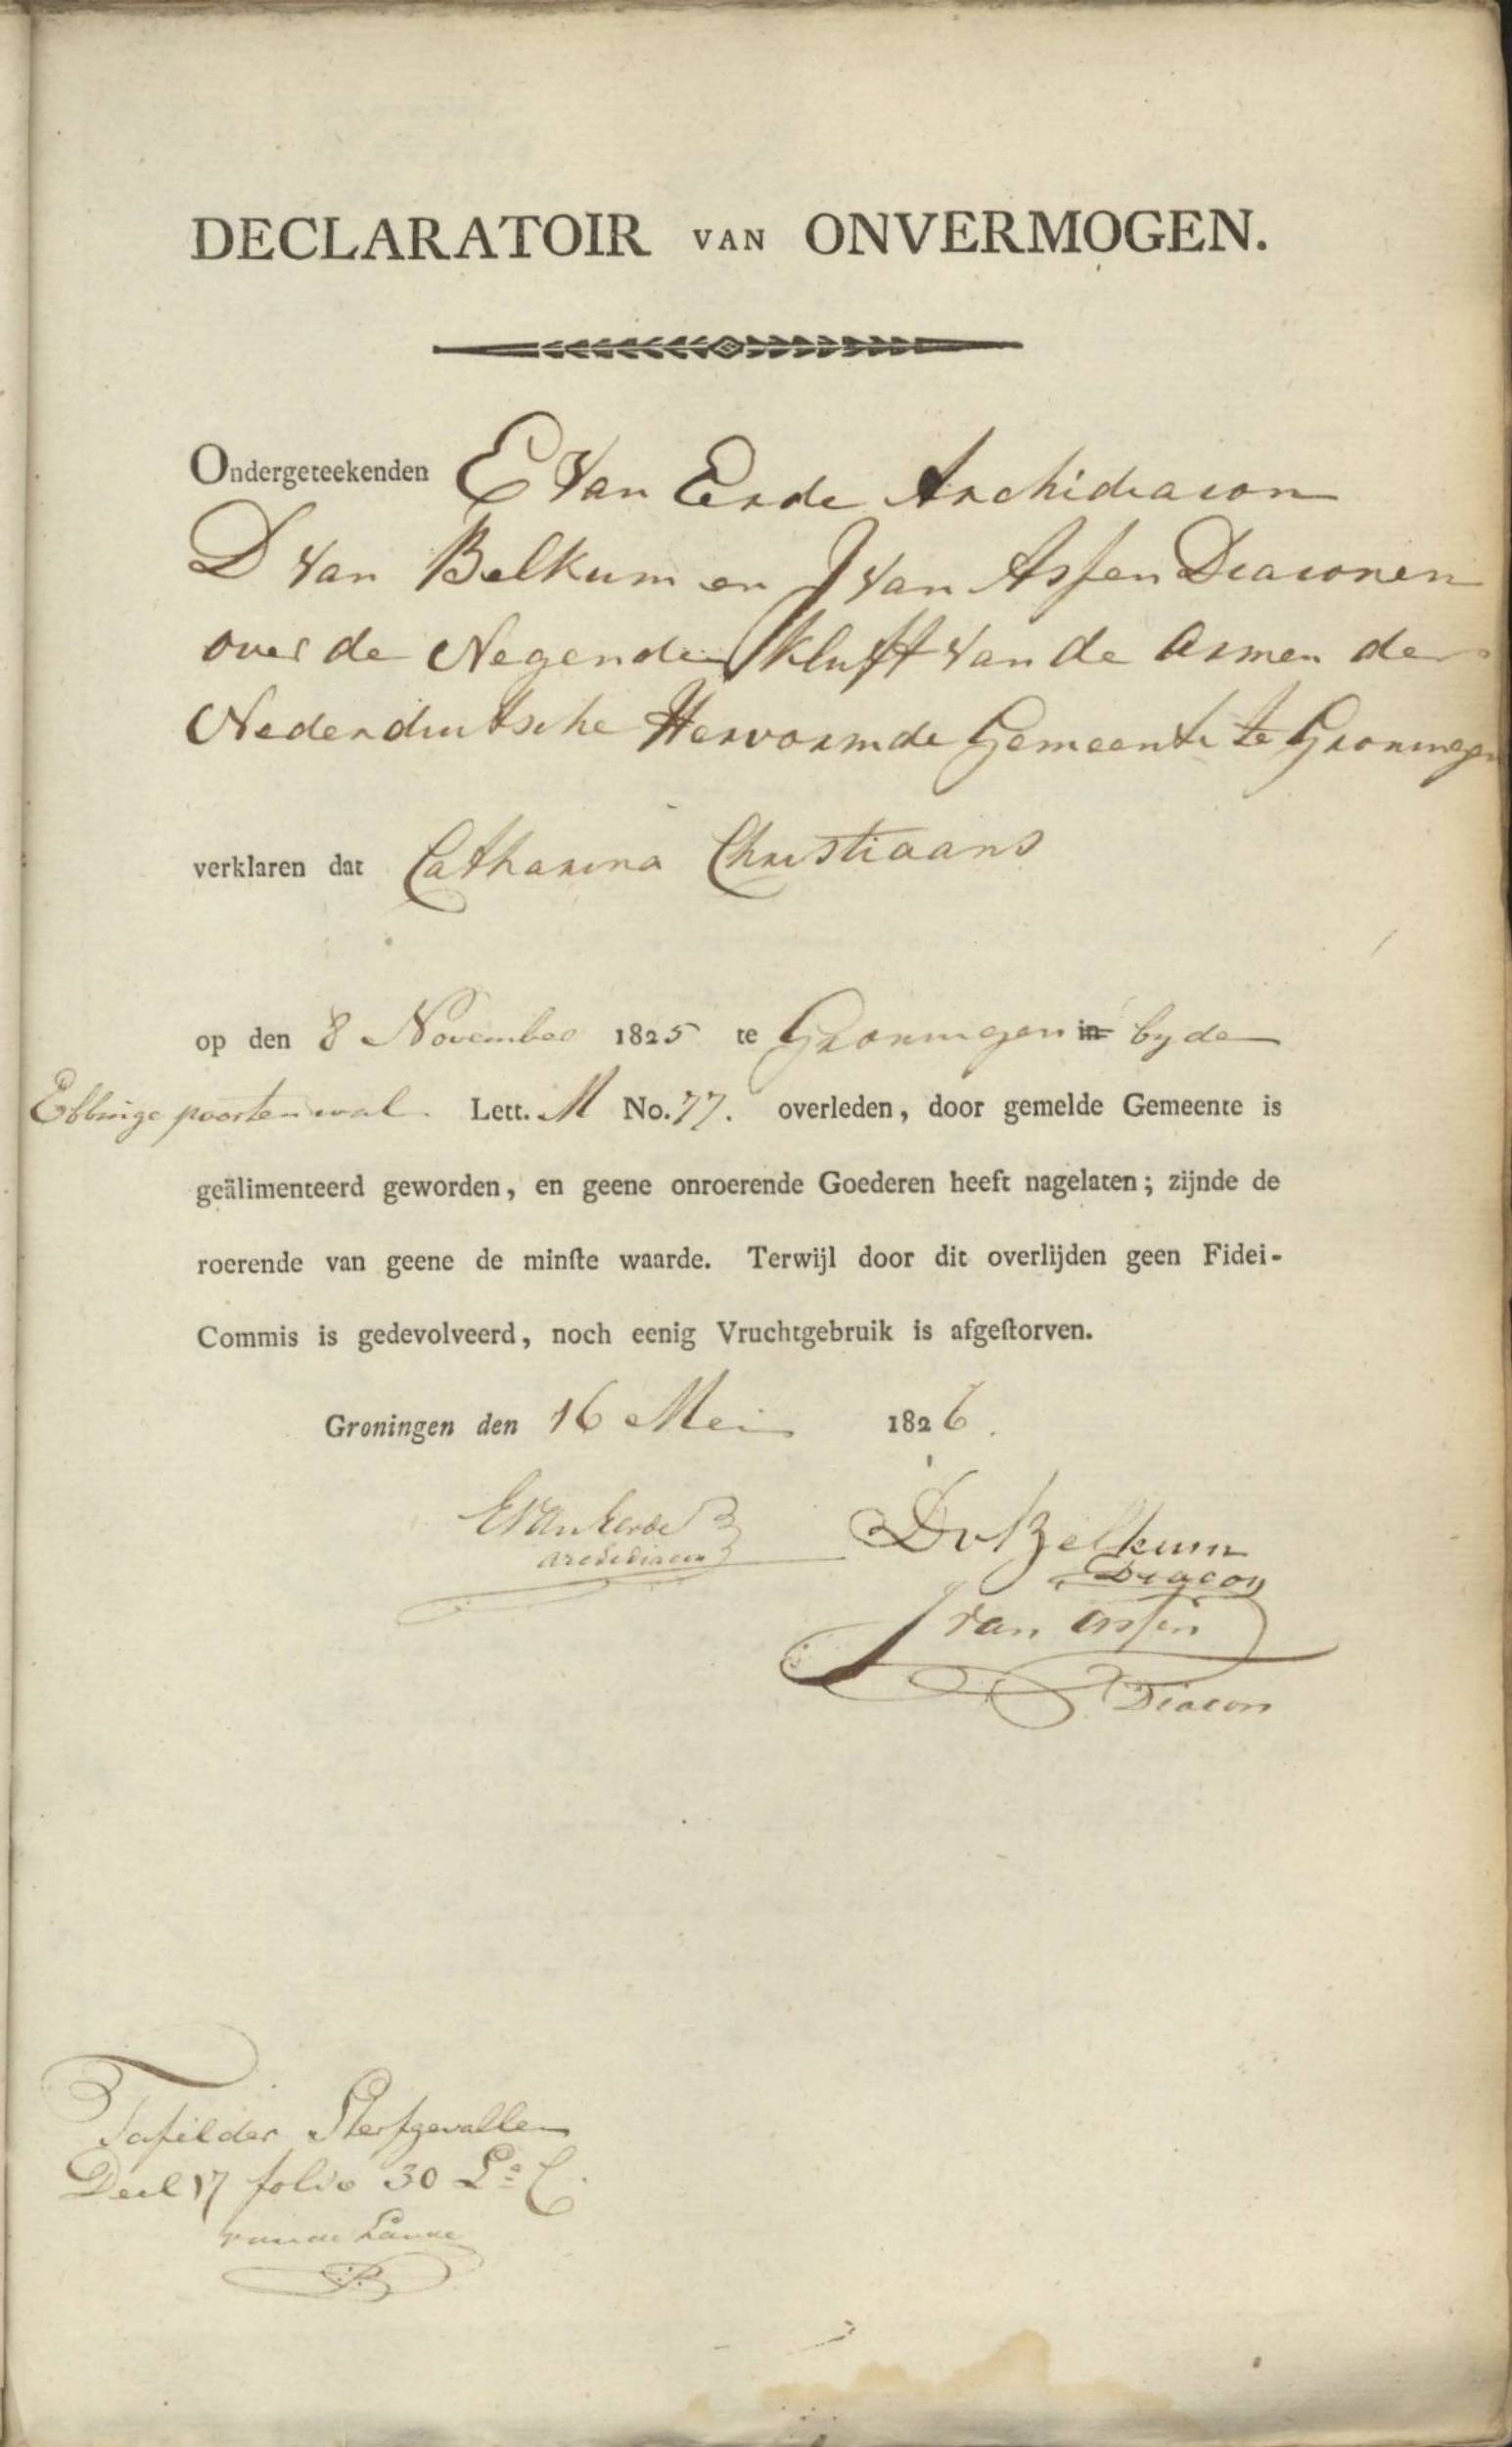 DECLARATOIR VAN ONVERMOGEN.
Ondergeteekenden E Van Eerde Archidiacon
D Van Belkum en J Van Assen Diaconen
over de Negende Kluft van de Armen der
Nederduitsche Hervormde Gemeente te Groningen
verklaren dat Catharina Christiaans
op den 8 November 1825 te Groningen in by de
Ebbinge poorten wal. Lett. M No. 77. overleden, door gemelde Gemeente is
geälimenteerd geworden, en geene onroerende Goederen heeft nagelaten; zijnde de
roerende van geene de minſte waarde. Terwijl door dit overlijden geen Fidei-
Commis is gedevolveerd, noch eenig Vruchtgebruik is afgeſtorven.
Groningen den 16 Mei 1826.
E Van Eerde
archidiacon
D v Belkum
Diacon
J van Assen
Diacon
Tafel der Sterfgevallen
Deel 17 folio 30 La C.